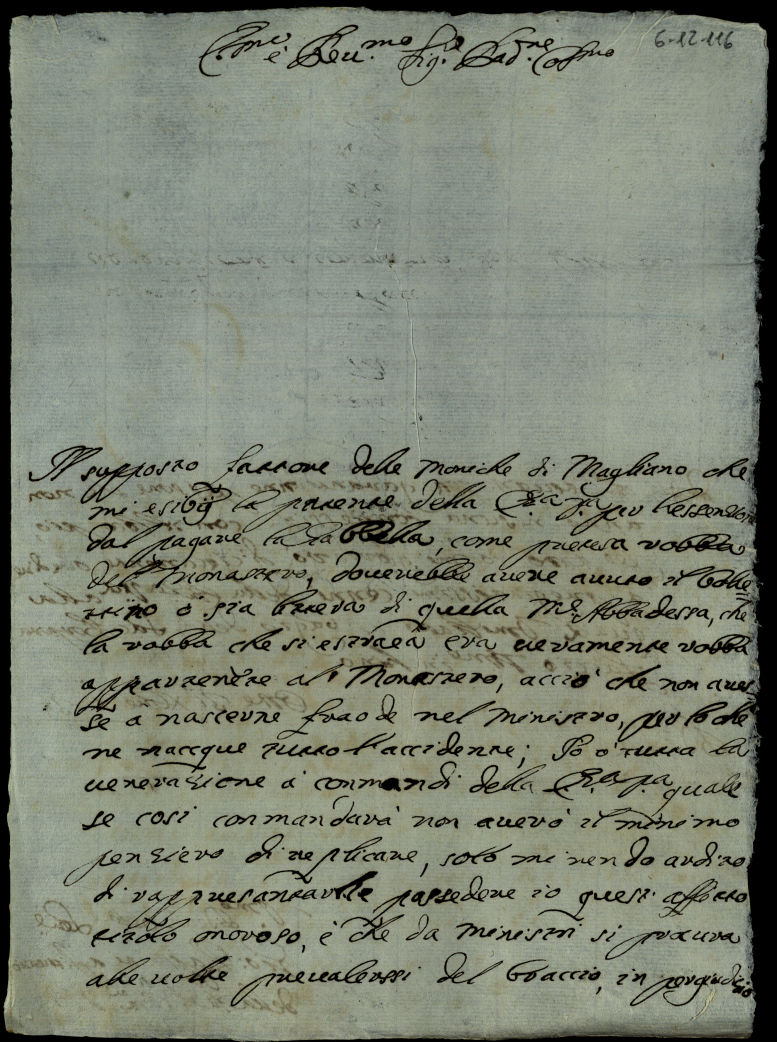 6-12-116
Em.mo è Reu.mo Sig.r Pad.ne Co.mo
Il supposto fattore delle moniche di Magliano che
mi esibì la patente della E.a
dal pagare la Gabbella, come pretesa robba
del Monastero, douerebbe auere auuto il bolle=
ttino ó sia lettera di quella M.e Abbadessa, che
la robba che si estraea era ueramente robba
appartenente al Monastero, acció che non aues
se a nascerne fraode nel ministro, per lo che
ne nacque tutto l'accidente; Io ó tutta la
uenerazione á conmandi della E.a quale
se cosi conmandará non aueró il minimo
penziero di replicare, solo mi rendo ardito
di rappresantarle possedere io questi affitto
titolo onoroso, è che da ministri si procura
alle uolte preualerssi del braccio, in pergiudicio